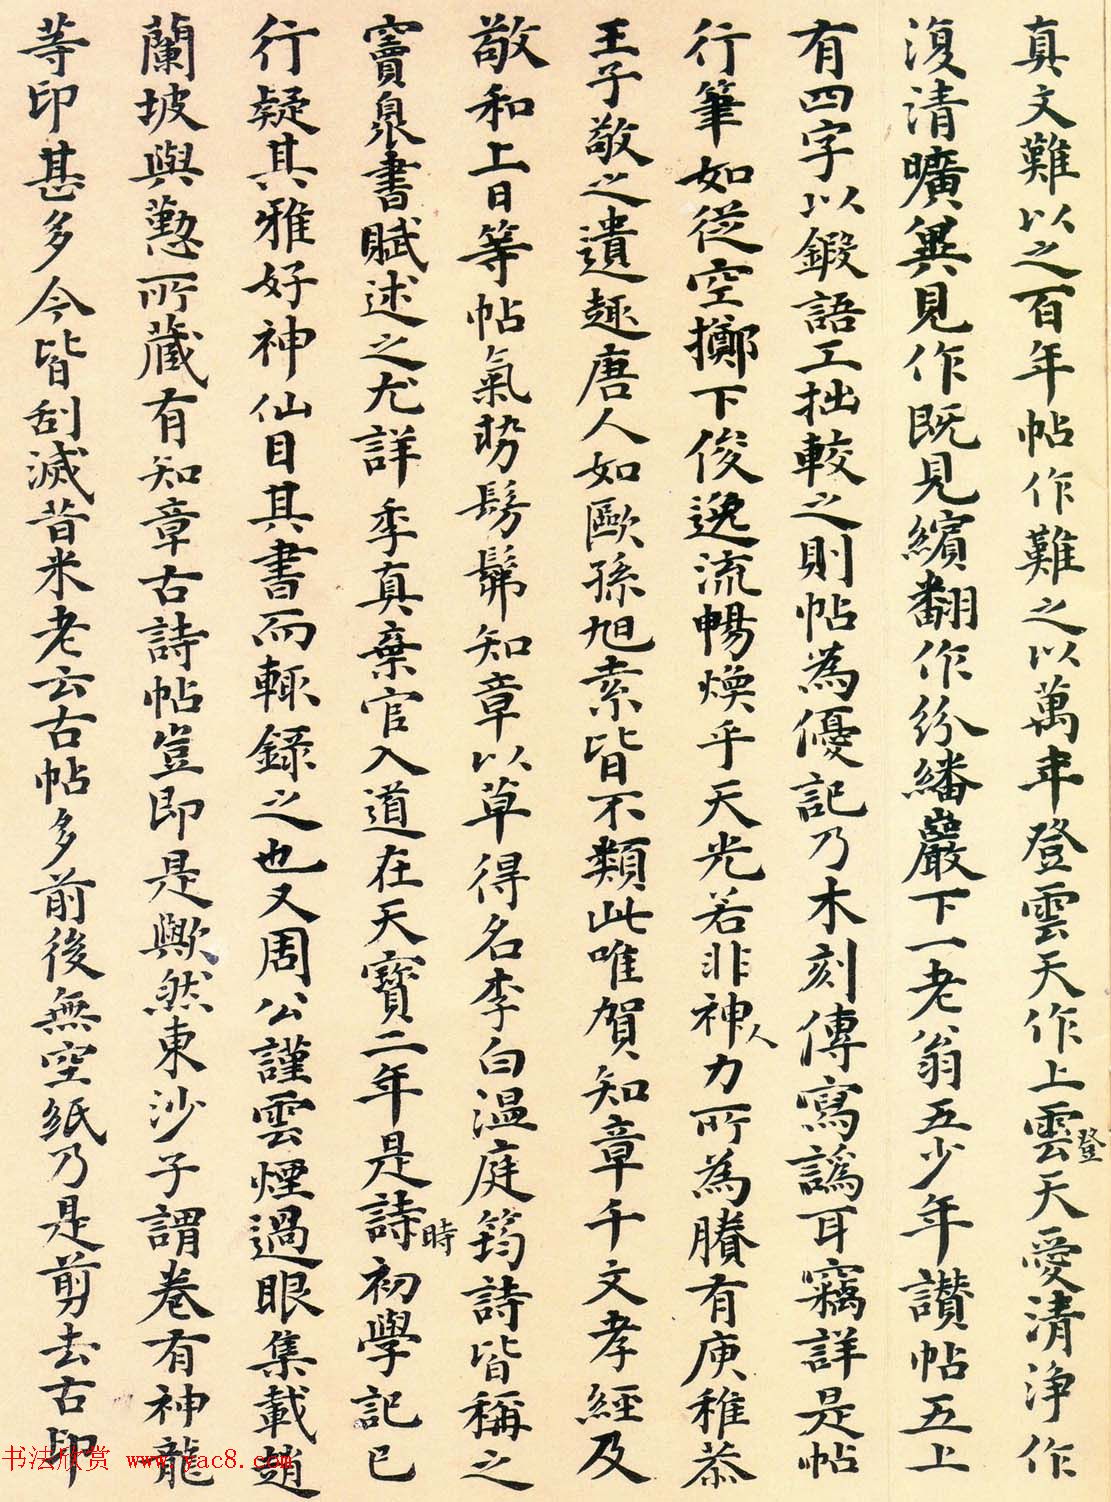 真文難以之百年帖作難之以萬年登雲天作上雲登天愛清淨作
復清曠異見作既見繽翻作紛繙巖下一老翁五少年讚帖五上
有四字以鍛語工拙較之則帖為優記乃木刻傳寫譌耳竊詳是帖
行筆如從空擲下俊逸流暢煥乎天光若非神人力所為賸有庾稚恭
王子敬之遺趣唐人如歐孫旭素皆不類此唯賀知章千文孝經及
敬和上日等帖氣勢髣髴知章以草得名李白温庭筠詩皆稱之
竇臮書賦述之尤詳季真棄官入道在天寶二年是詩時初學記已
行疑其雅好神仙目其書而輒録之也又周公謹雲煙過眼集載趙
蘭坡與懃所藏有知章古詩帖豈即是歟然東沙子謂卷有神龍
等印甚多今皆刮滅昔米老云古帖多前後無空紙乃是剪去古印
书法欣赏 www.yac8.com